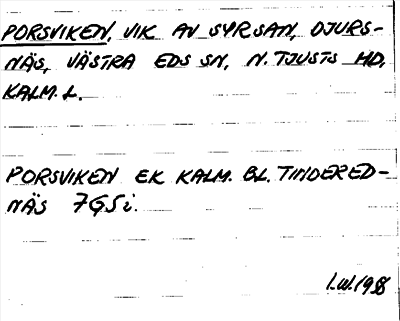 PORSVIKEN, VIK AV SYRSAN, DJURS-
NÄS, VÄSTRA EDS SN, N. TJUSTS HD,
KALM. L.
PORSVIKEN EK KALM. BL. TINDERED-
NÄS 7G5i.
I.W. 1958